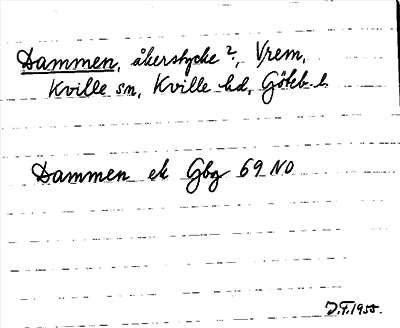 Dammen, åkerstycke?, Vrem,
Kville sn, Kville hd, Göteb. l.
Dammen ek Gbg 69 NO
J.F. 1955.